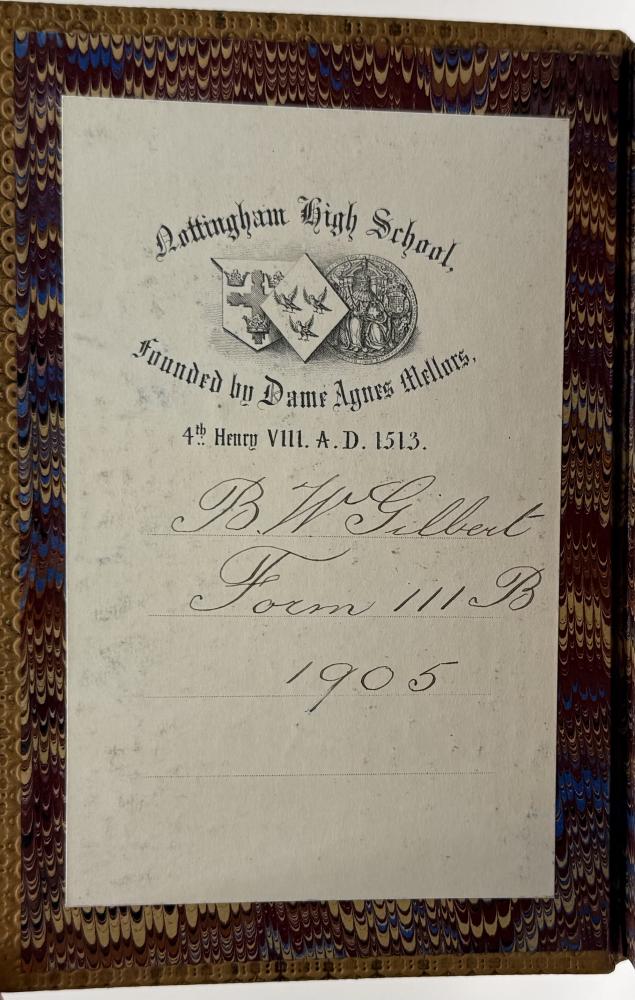 Nottingham High School,
Founded by Dame Agnes Mellors,
4th Henry VIII. A.D. 1513.
B. W Gilbert
Form III B
1905